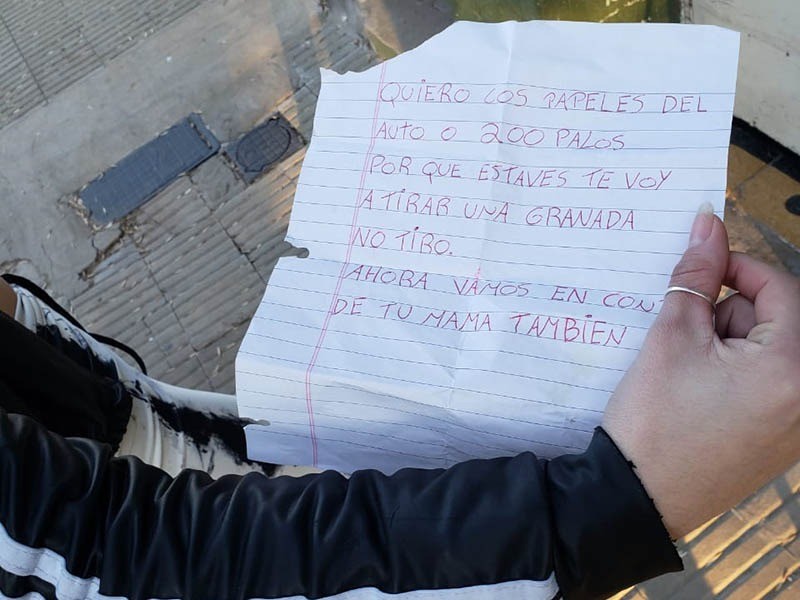 QUIERO LOS PAPELES DEL
AUTO O 200 PALOS
POR QUE ESTAVES TE VOY
A TIRAR UNA GRANADA
NO TIRO.
AHORA VAMOS EN CON
DE TU MAMA TAMBIEN